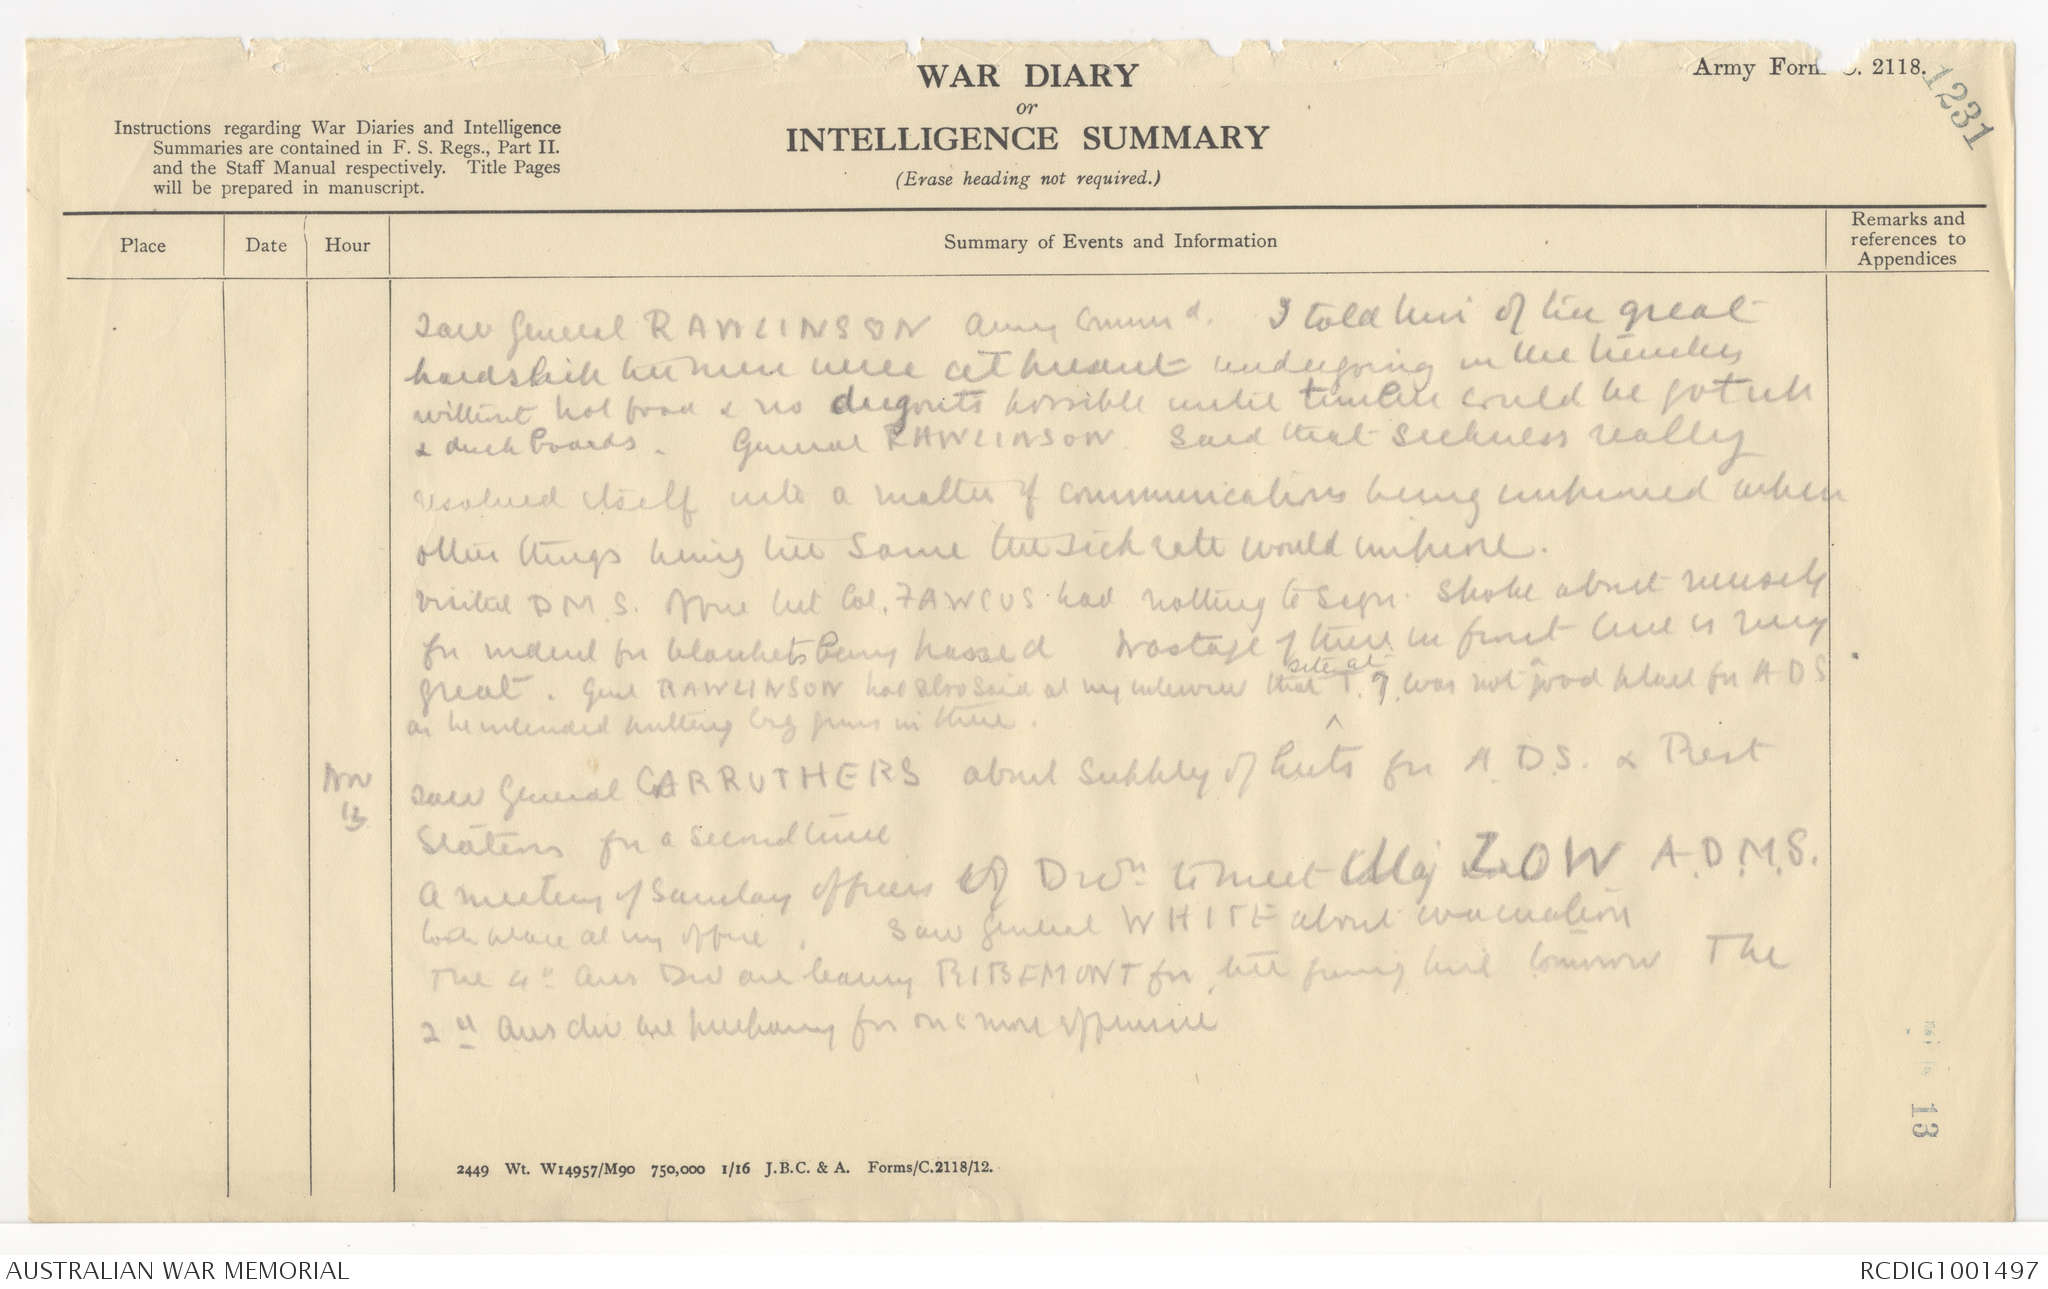 WAR DIARY
or
INTELLIGENCE SUMMARY
(Erase heading not required.)
Army Form C. 2118.
1231
Instructions regarding War Diaries and Intelligence
Summaries are contained in F. S. Regs., Part II.
and the Staff Manual respectively. Title Pages
will be prepared in manuscript.
Place
Date
Hour
Summary of Events and Information
Remarks and
references to
Appendices
Saw General RAWLINSON Army Commd. I told him of the great
hardship the men were at present undergoing in the trenches
without hot food & no dugouts possible until timber could be got up
& duck boards. General RAWLINSON said that sickness really
resolved itself into a matter of communications being improved when
other things being the same the sick rate would improve.
Visited D.M.S. office but Col. FAWCUS had nothing to sign. Spoke about necessity
for indent for blankets being passed Wastage of these in front line is very
great. Genl RAWLINSON had also said at my interview that site at T. 7. was not good place for A D S
as he intended putting big guns in there.
Nov
13
Saw General CARRUTHERS about supply of huts for A.D.S. & Rest
Stations for a second time
A meeting of Sanitary officers of Divn to meet Maj LOW A.D.M.S.
took place at my office. Saw General WHITE about evacuation
The 4th Aus Div are leaving RIBEMONT for the firing line tomorrow The
2nd Aus div are preparing for one more offensive
13
2449 Wt. W14957/M90 750,000 1/16 J.B.C. & A. Forms/C.2118/12.
AUSTRALIAN WAR MEMORIAL
RCDIG1001497